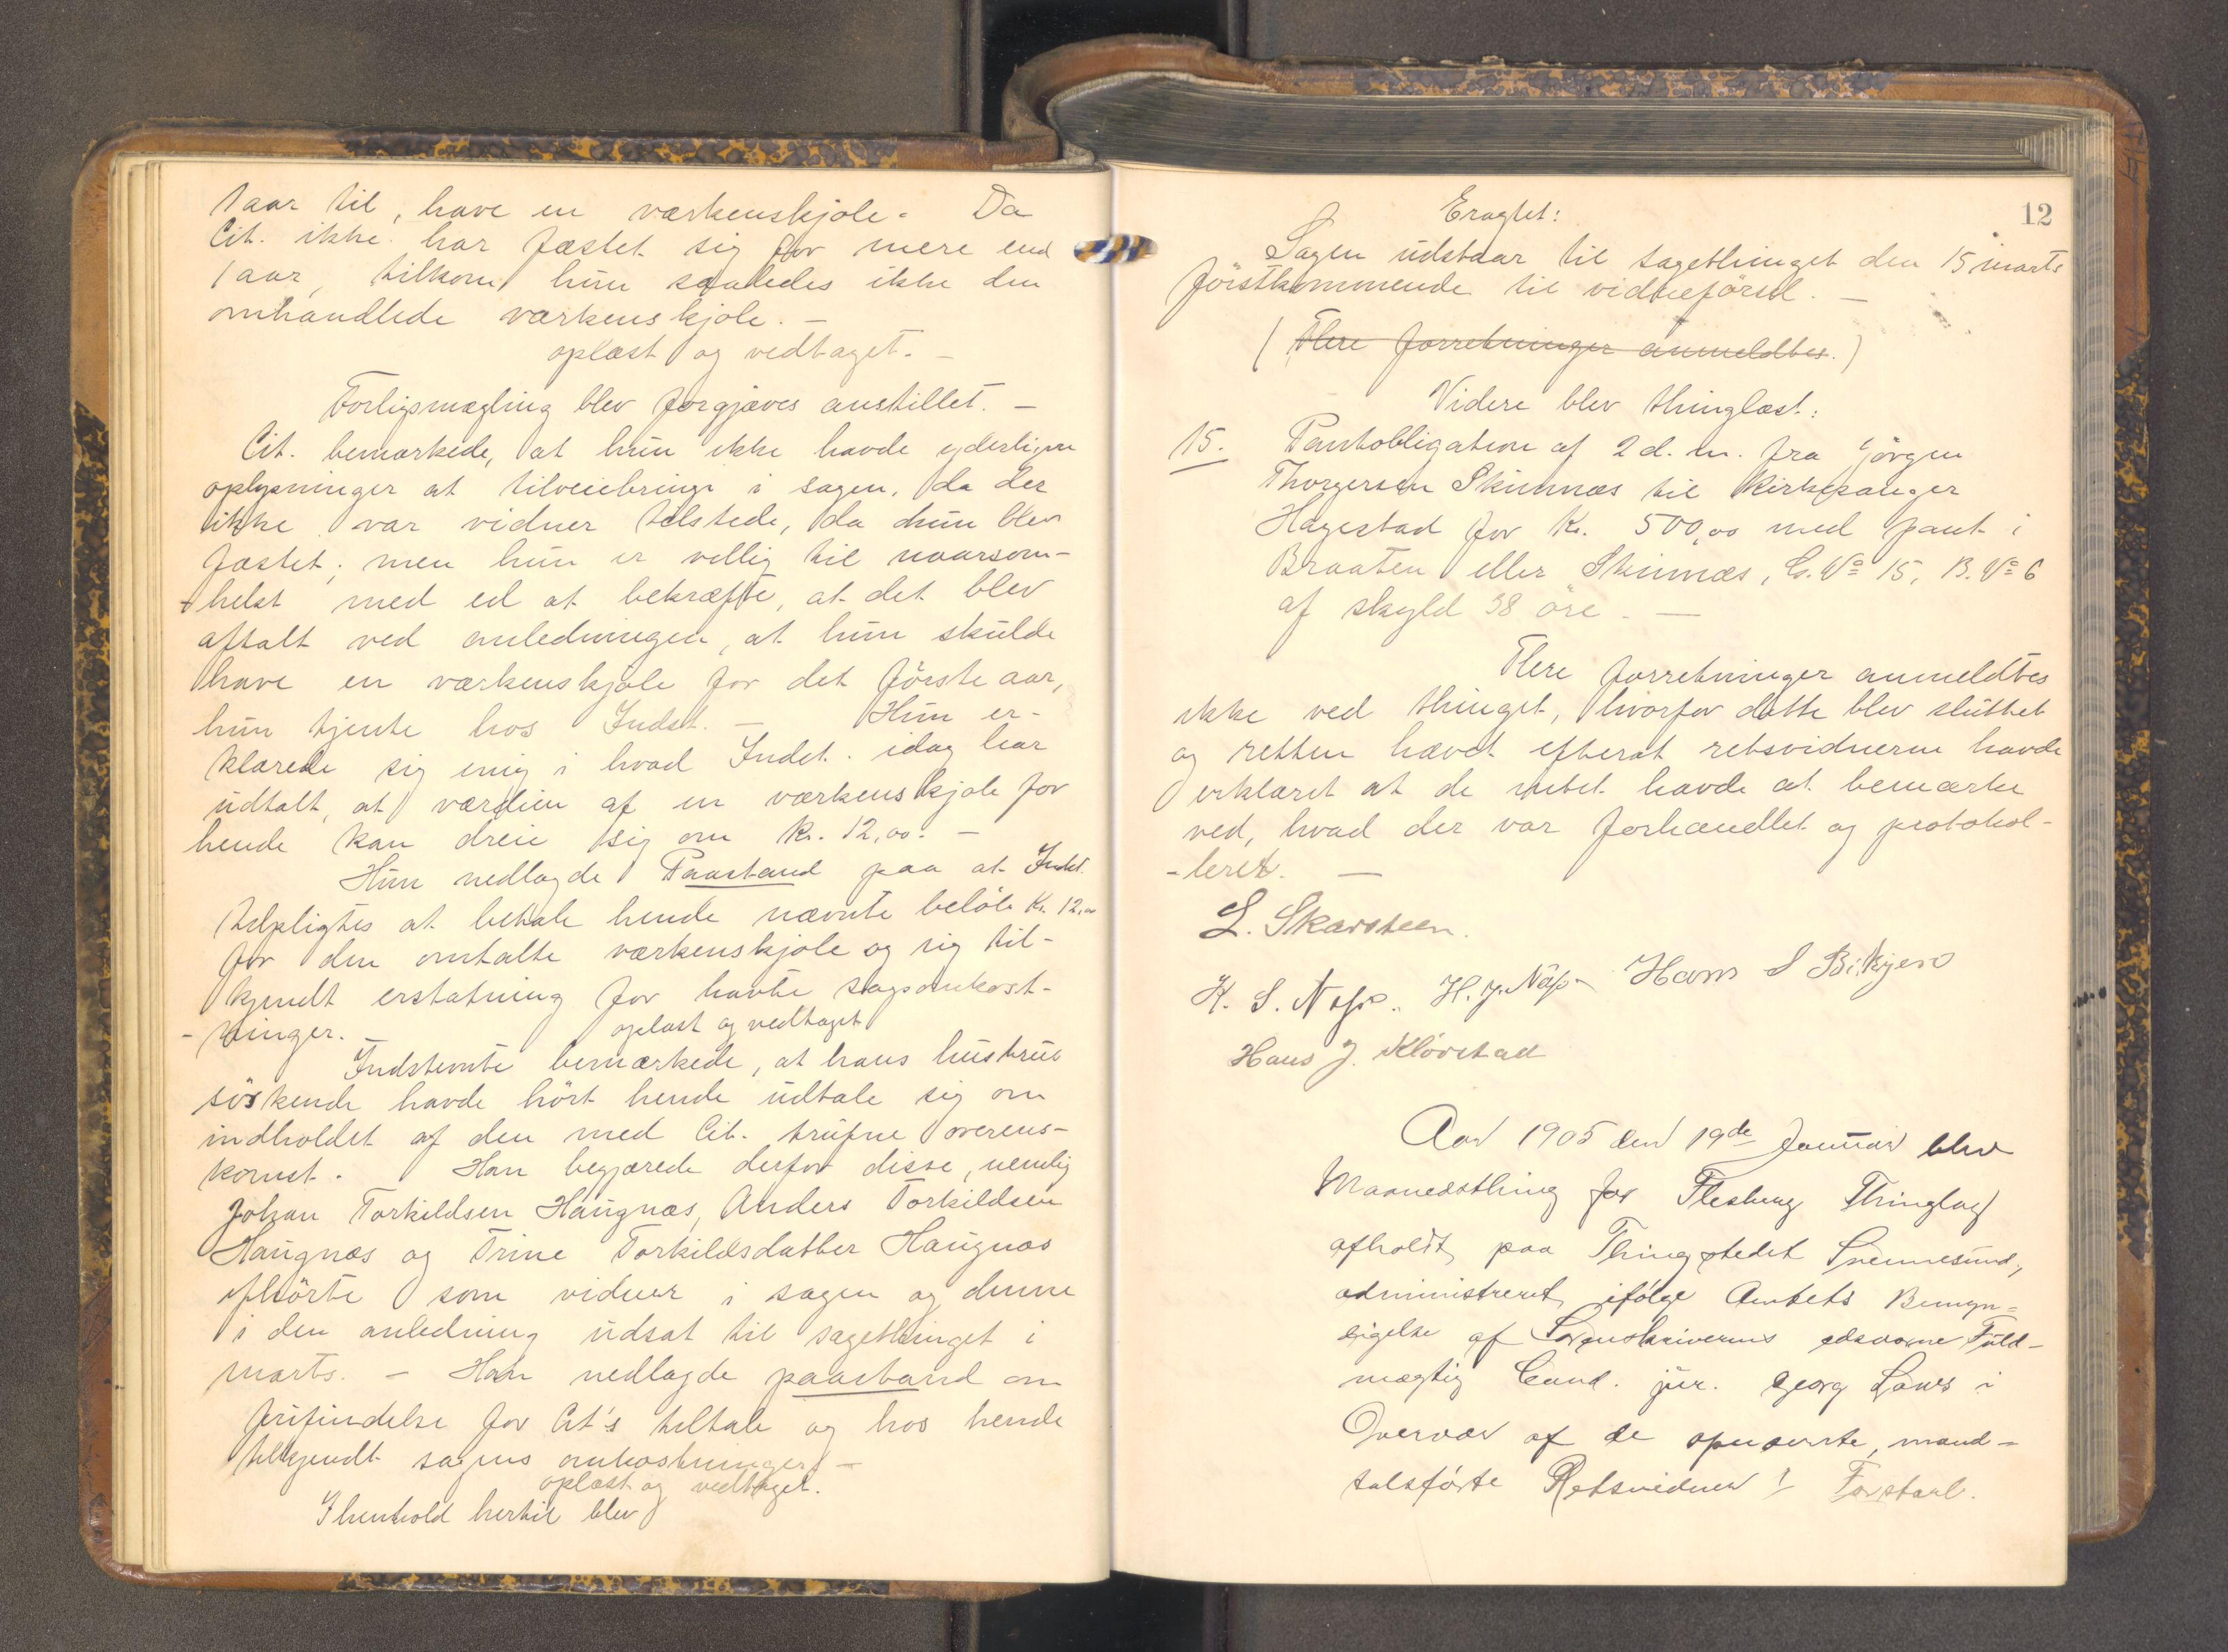 1 aar til, have en værkenskjole. Da
Cit. ikke har fæstet sig for mere end
1 aar, tilkom hun saaledes ikke den
omhandlede værkenskjole. —
oplæst og vedtaget. —
Forligsmægling blev forgjæves anstillet. —
Cit. bemærkede, at hun ikke havde yderligere
oplysninger at tilveiebringe i sagen, da der
ikke var vidner tilstede, da hun blev
fæstet; men hun er villig til naarsom-
-helst med ed at bekræfte, at det blev
aftalt ved anledningen, at hun skulde
have en værkenskjole for det første aar,
hun tjente hos Indst. — Hun er-
klærede sig enig i hvad Indst. idag har
udtalt, at værdien af en værkenskjole for
hende kan dreie sig om kr. 12,00. —
Hun nedlagde Paastand paa at Indst.
tilpligtes at betale hende nævnte beløb Kr. 12,00
for den omtalte værkenskjole og sig til-
kjendt erstatning for havte sagsomkost-
-ninger. oplæst og vedtaget
Indstevnte bemærkede, at hans hustrus
søskende havde hørt hende udtale sig om
indholdet af den med Cit. trufne overens-
komst. Han begjærede derfor disse, nemlig
Johan Torkildsen Haugnæs, Anders Torkildsen
Haugnæs og Trine Torkildsdatter Haugnæs
afhørte som vidner i sagen og denne
i den anledning udsat til sagethinget i
marts. — Han nedlagde paastand om
frifindelse for Cit's tiltale og hos hende
tilkjendt sagens omkostninger. —
oplæst og vedtaget.
I henhold hertil blev
12
Eragtet:
Sagen udstaar til sagethinget den 15 marts
førstkommende til vidneførsel. —
(Flere forretninger anmeldtes.)
Videre blev thinglæst:
15. Pantobligation af 2 d. m. fra Jørgen
Thorgersen Skinnæs til Kirkesanger
Hagestad for Kr. 500,00 med pant i
Braaten eller Skinnæs, G. No 15, B. No 6
af skyld 38 øre. —
Flere forretninger anmeldtes
ikke ved thinget, hvorfor dette blev sluttet
og retten hævet efterat retsvidnerne havde
erklæret at de intet havde at bemærke
ved, hvad der var forhandlet og protokol-
-leret. —
L. Skarsteen.
K. S. Næss. H. J. Næss Hans S
Hans J. Kløvstad
Aar 1905 den 19de Januar blev
Maanedsthing for Flesberg Thinglag
afholdt paa Thingstedet Svennesund,
administreret ifølge Amtets Bemyn-
digelse af Sorenskriverens edsvorne Fuld-
mægtig Cand. jur. Georg Løws i
Overvær af de opnævnte, mand-
talsførte Retsvidner 1 Forstaal.